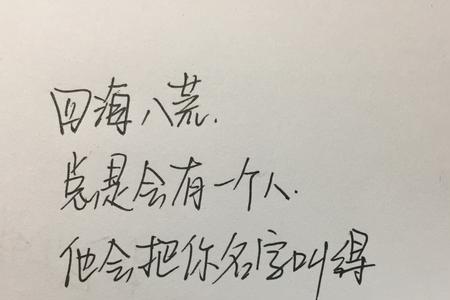 四海八荒.
总是会有一个人.
他会把你名字叫得